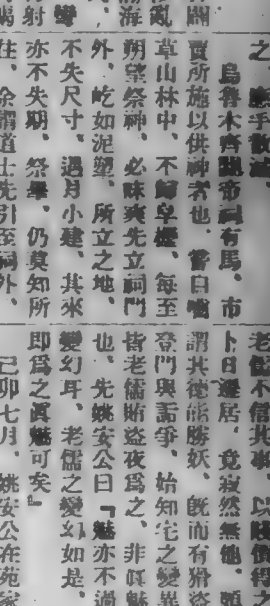 闢
海亂
彎
射
之、應手散滅、
烏魯木齊關帝祠有馬、市
賈所施以供神者也、嘗自嚙
草山林中、不歸皁櫪、每至
朔望祭神、必昧爽先立祠門
外、屹如泥塑、所立之地、
不失尺寸、遇月小建、其來
亦不失期、祭畢、仍莫知所
往、余謂道士先引至祠外、
老儒不信其事、以賤價得之
卜日遷居、竟寂然無他、頗
謂其德能勝妖、既而有猾盜
登門與訟爭、始知宅之變異
皆老儒賄盜夜爲之、非眞魅
也、先姚安公曰『魅亦不過
變幻耳、老儒之變幻如是、
即爲之眞魅可矣』
己卯七月、姚安公在苑家